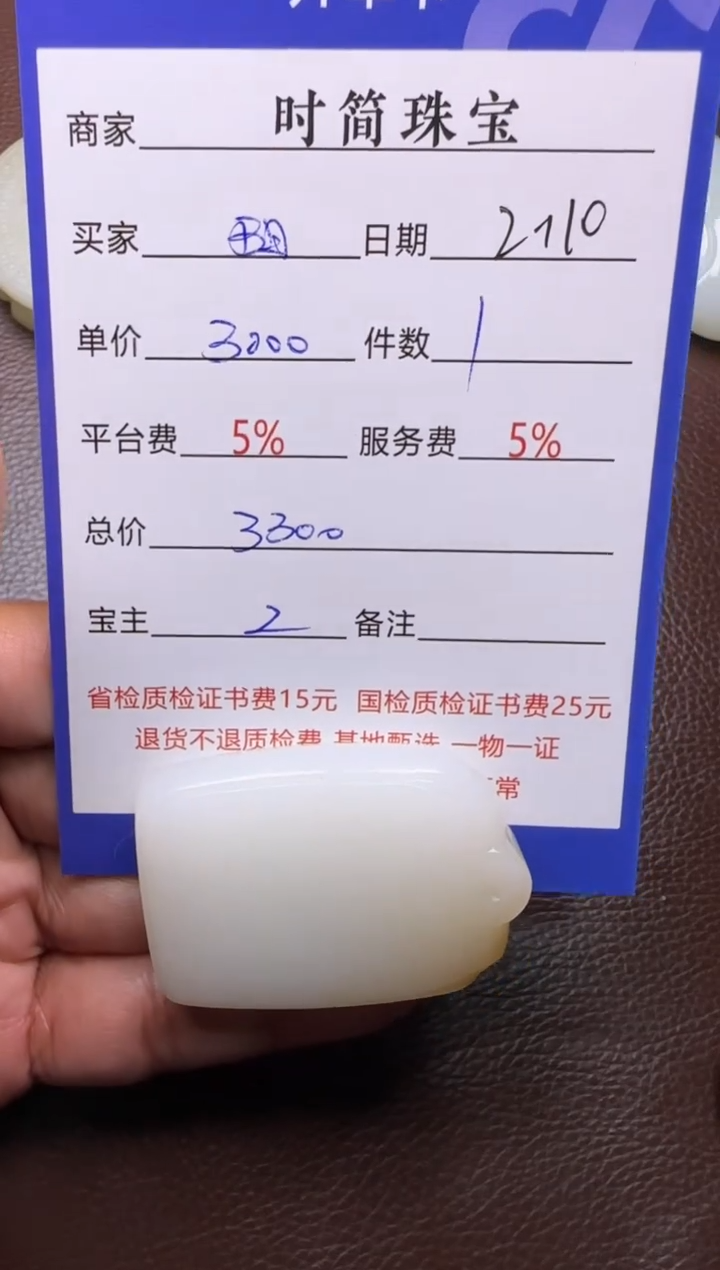 商家 时简珠宝
买家 日期 2110
单价 3000 件数 1
平台费 5% 服务费 5%
总价 3300
宝主 2 备注
省检质检证书费15元 国检质检证书费25元
退货不退质检费 基地甄选 一物一证
常